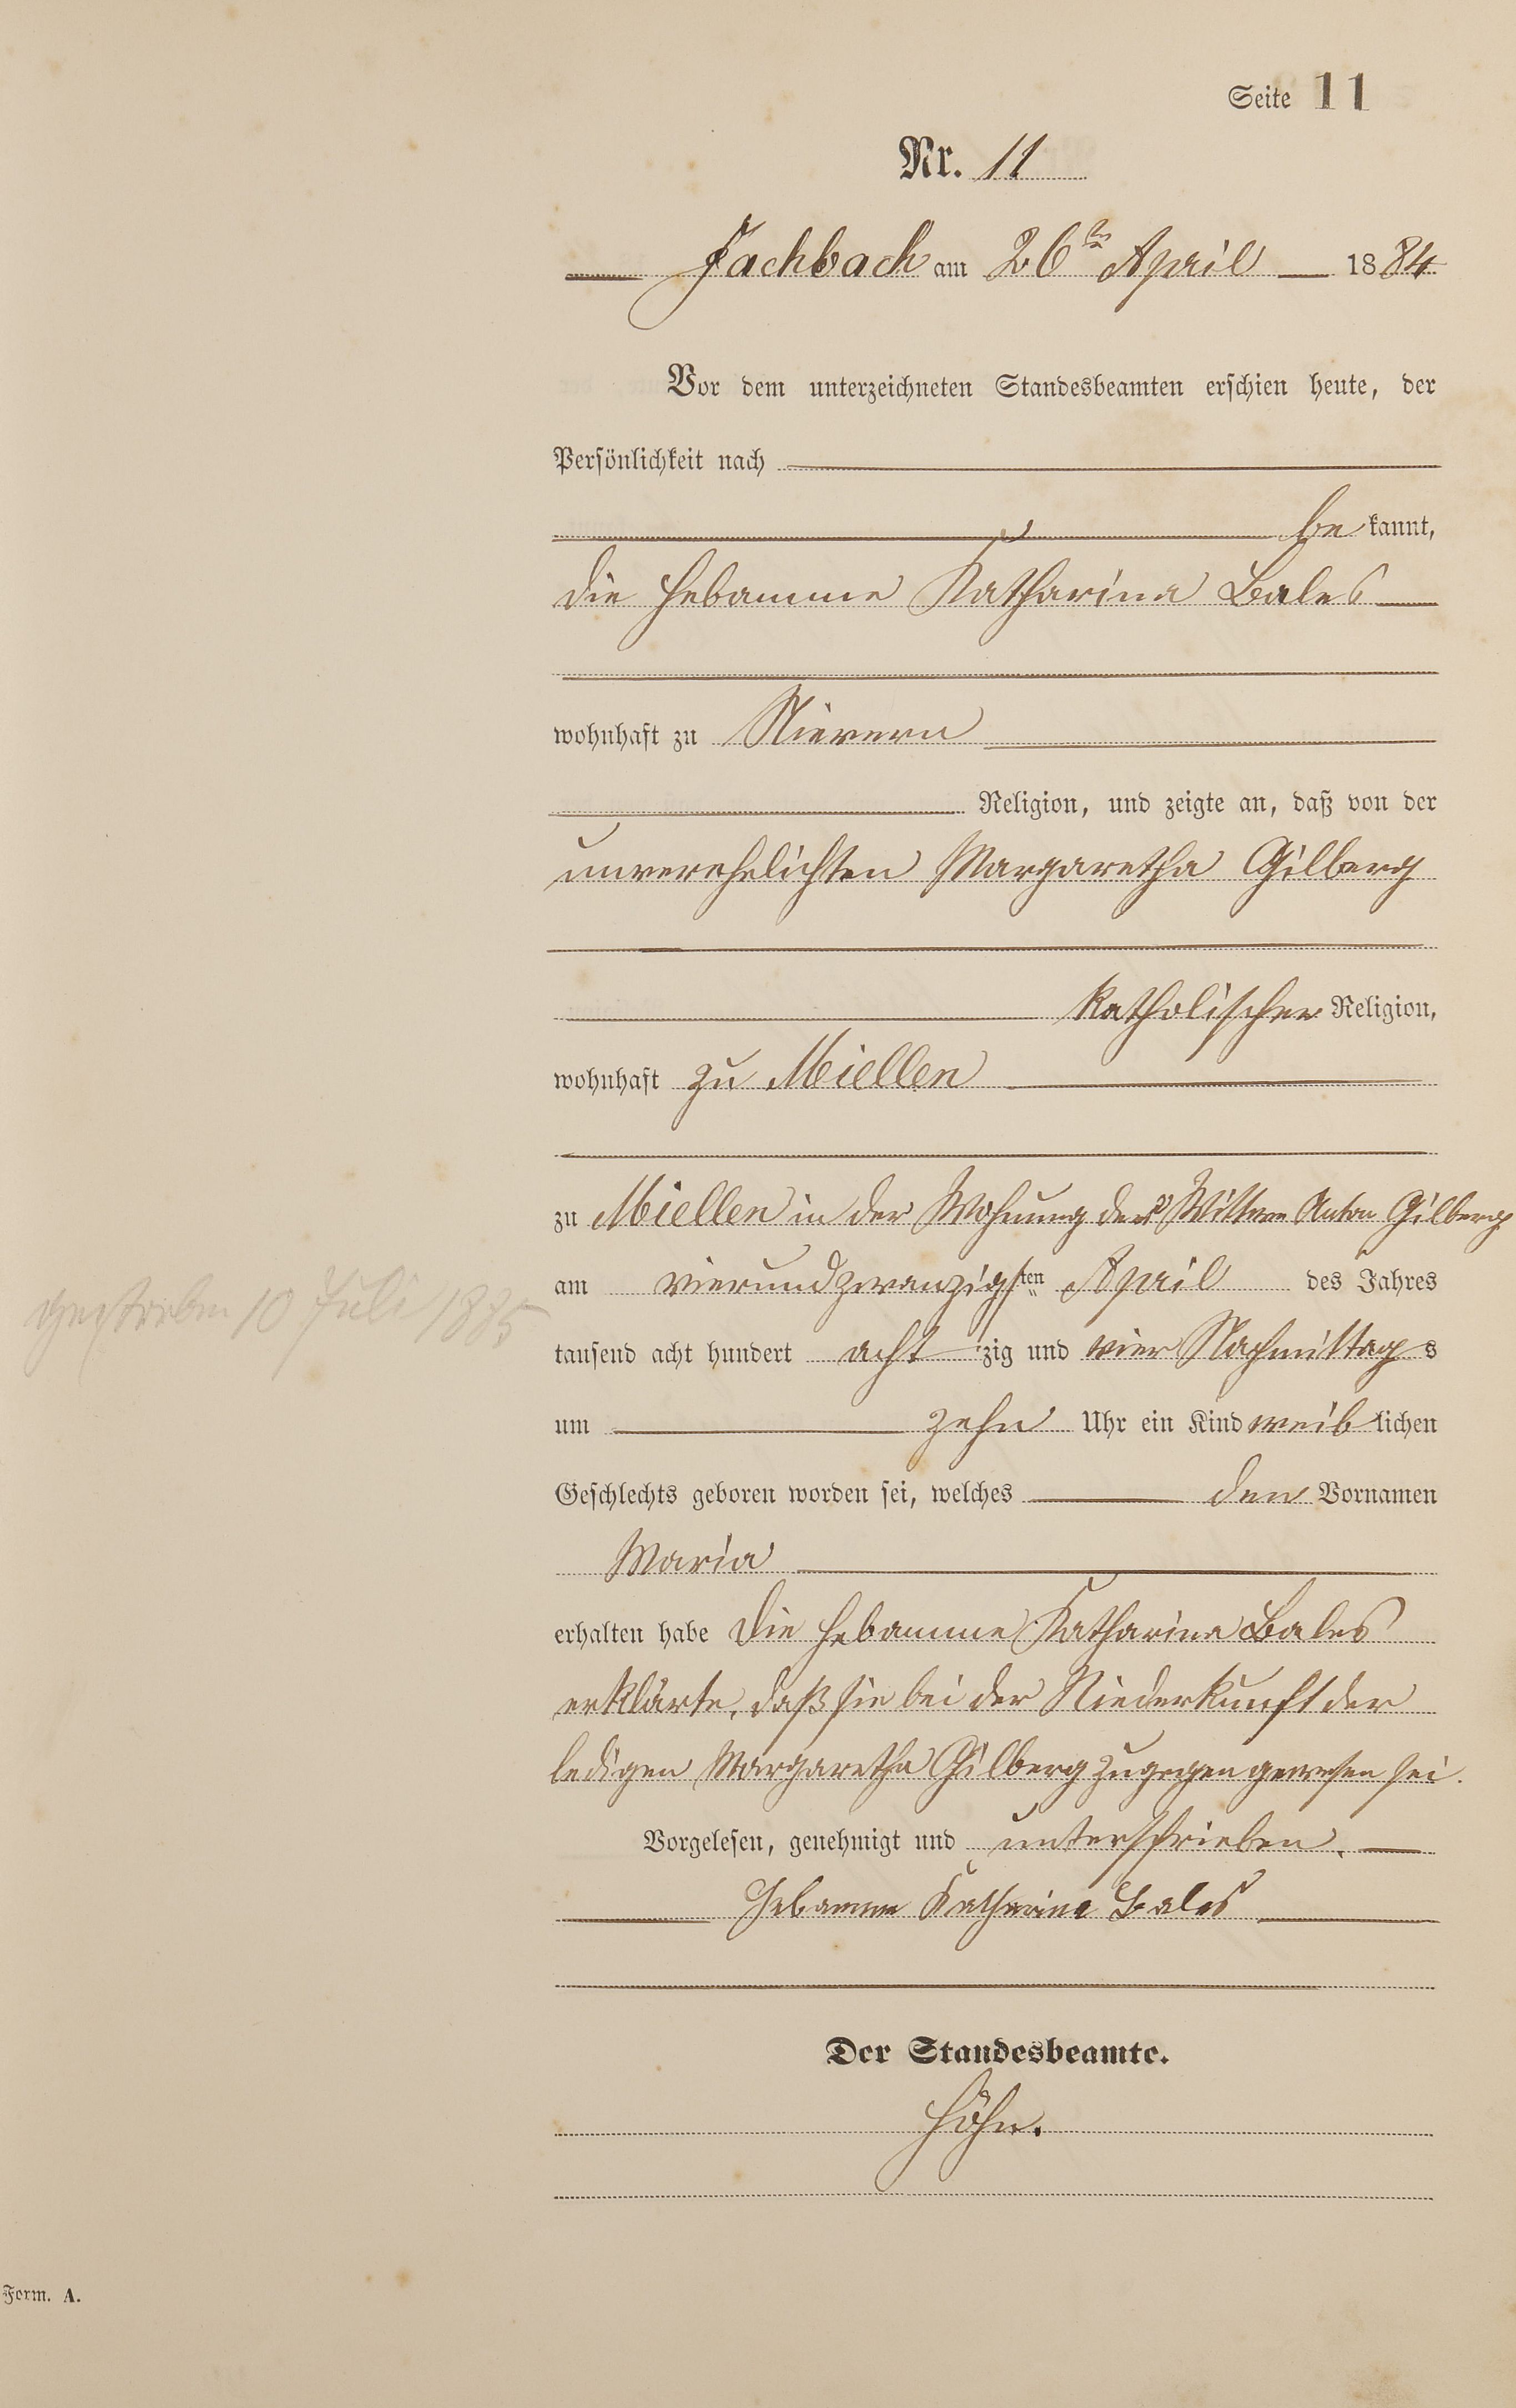 Seite 11
Nr. 11
Fachbach am 26ten April 1884
Vor dem unterzeichneten Standesbeamten erschien heute, der
Persönlichkeit nach
bekannt,
die Hebamme Katharina Bales
wohnhaft zu Nievern
Religion, und zeigte an, daß von der
unverehelichten Margaretha Gilberg
katholischer Religion,
wohnhaft zu Miellen
zu Miellen in der Wohnung der Wittwe Anton Gilberg
am vierundzwanzigsten April des Jahres
gestorben 10 Juli 1885
tausend acht hundert achtzig und vier Nachmittags
um zehn Uhr ein Kind weiblichen
Geschlechts geboren worden sei, welches den Vornamen
Maria
erhalten habe die Hebamme Katharina Bales
erklärte, daß sie bei der Niederkunft der
ledigen Margaretha Gilberg zugegen gewesen sei.
Vorgelesen, genehmigt und unterschrieben.
Hebamme Katharina Bales
Der Standesbeamte.
Höhn.
Form. A.